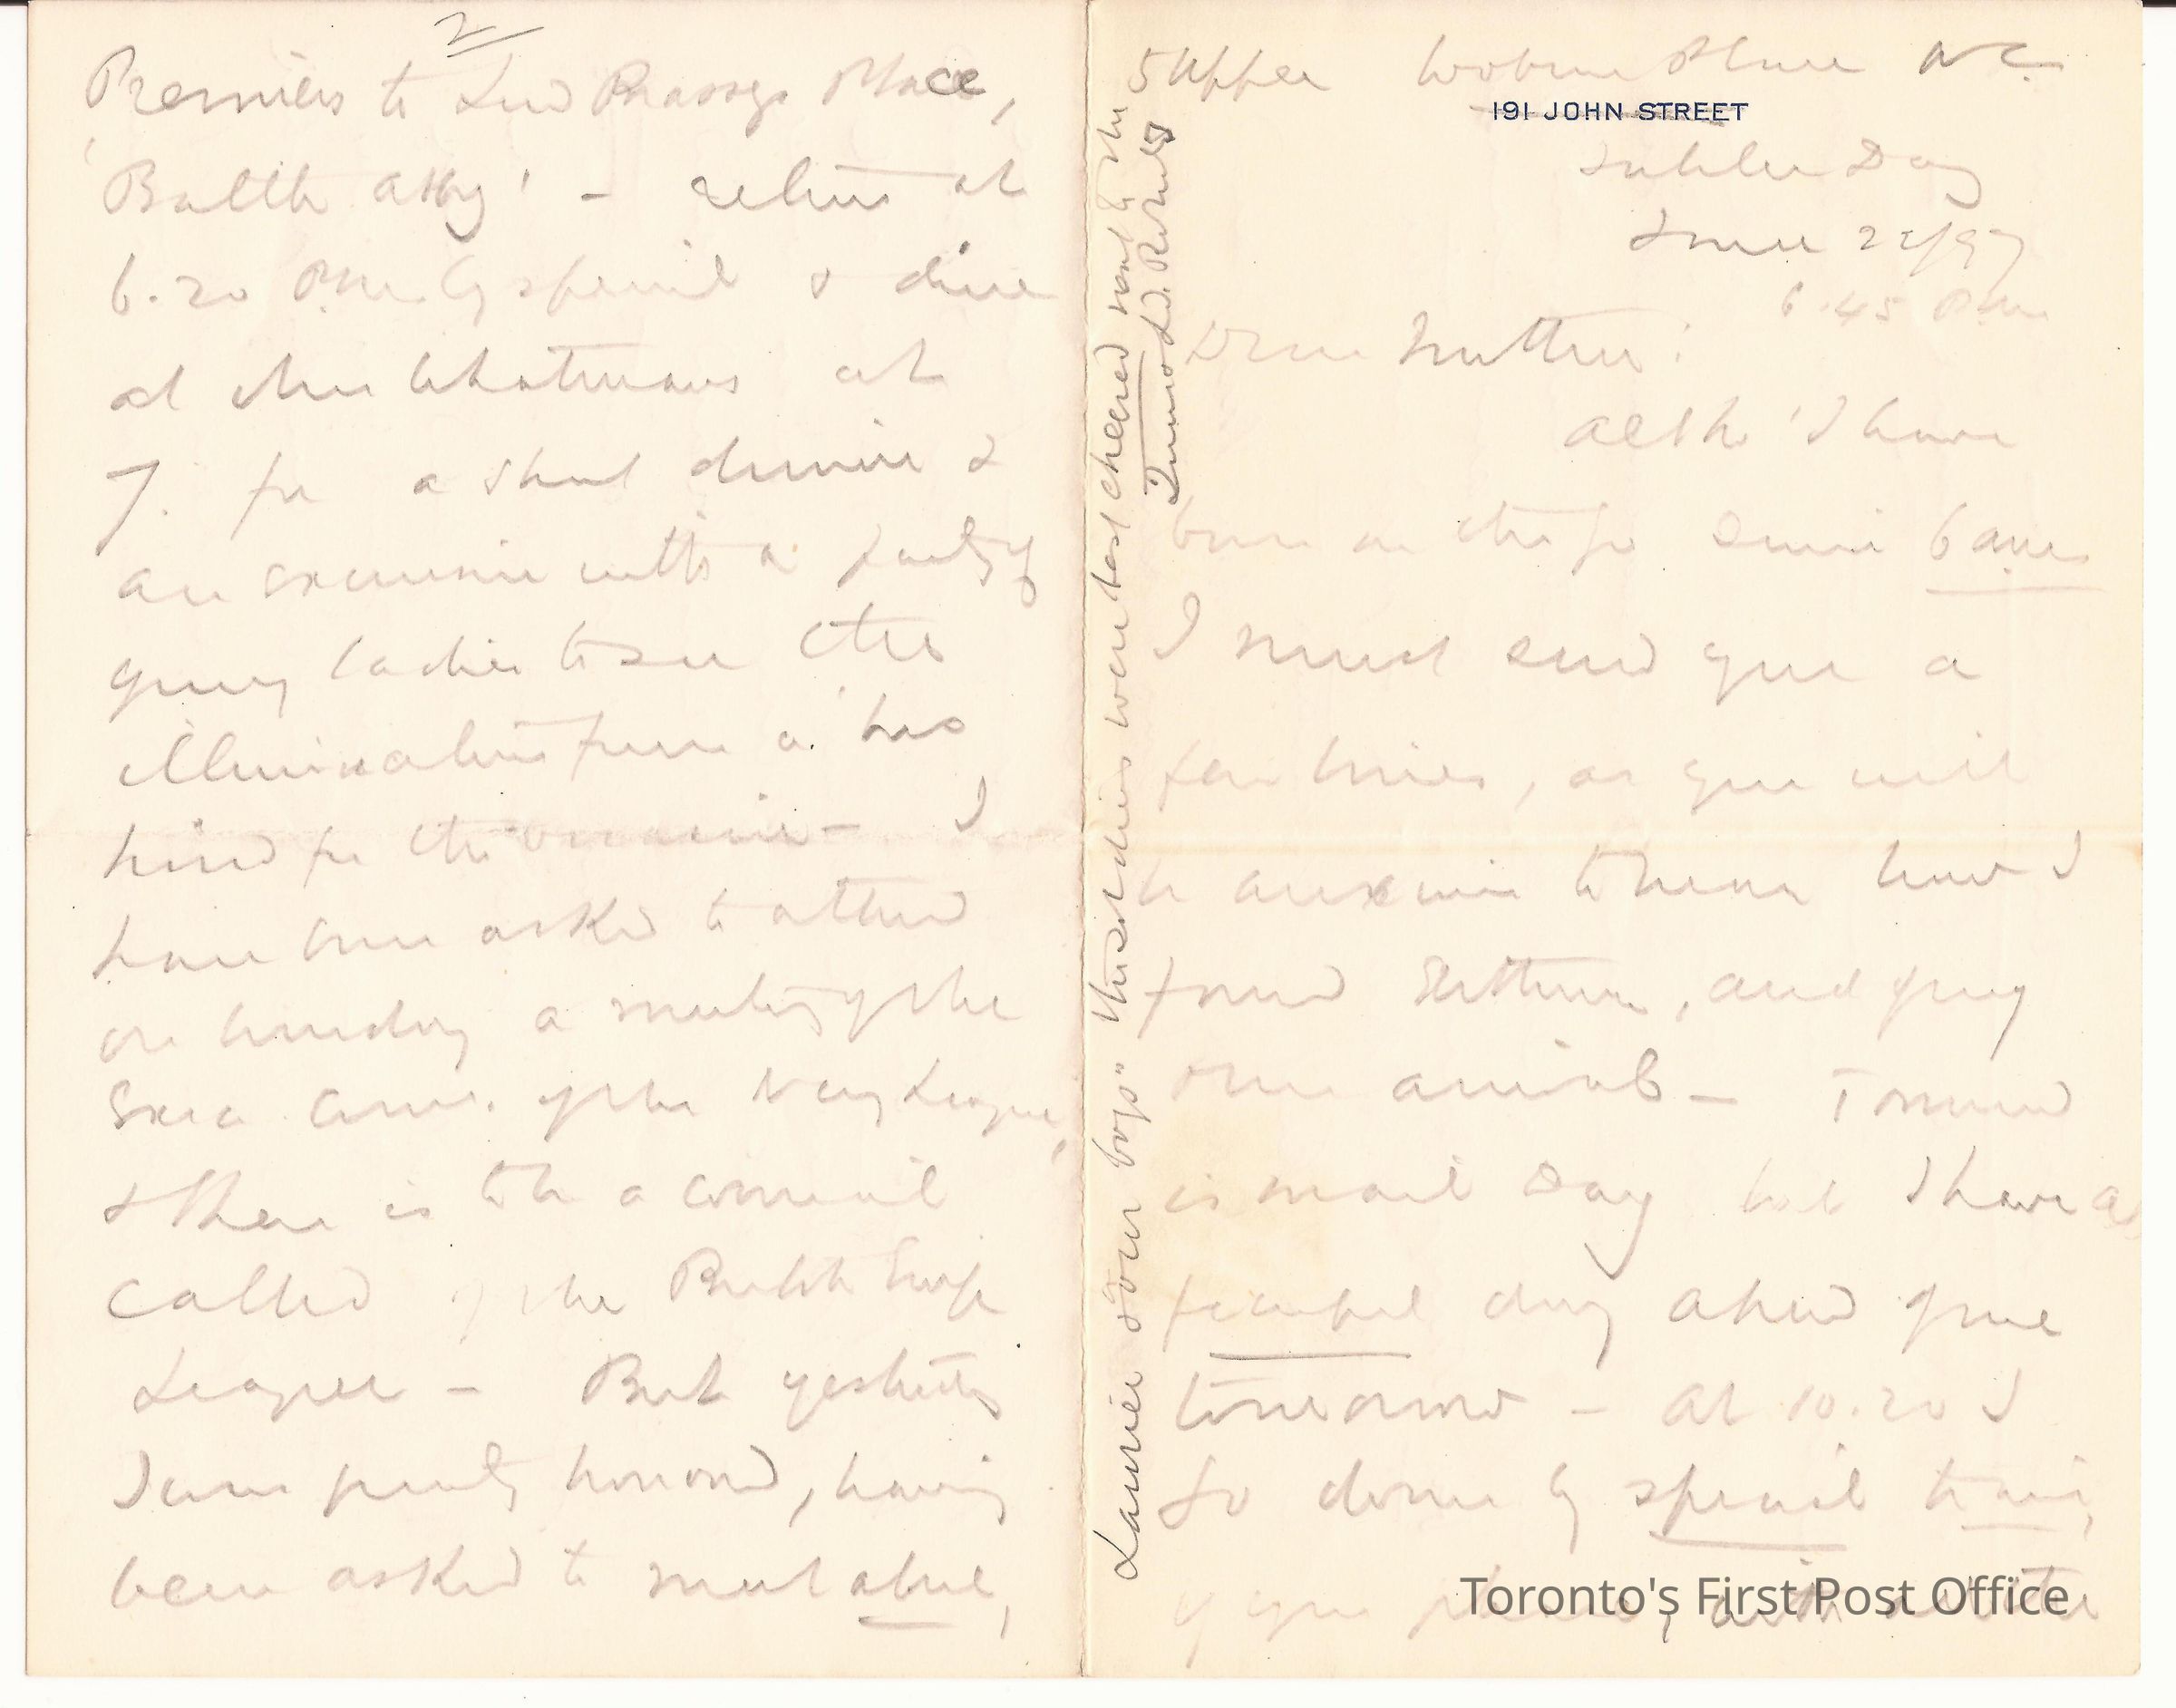 5 Upper Woburn Place W.C.
191 JOHN STREET
Jubilee Day
June 22/97
6.45 P.M.
Dear Mother:
Altho' I have
been on the go since 6 a.m.
I must send you a
few lines, as you will
be anxious to know how I
found, and of my
own arrival — Tomorrow
is mail day but I have a
fearful day ahead of me
tomorrow — At 10.20 I
go down by special train,
if you please, with the
Laurier & "our boys" the soldiers were best cheered next to the
Queen & Ld. Roberts
2
Premiers to Lord Brassey's Place,
'Battle Abby' — return at
6.20 P.M. by special & dine
at the Whatmans at
7. for a short dinner &
an excursion with a party of
young ladies to see the
illuminations from a bus
hired for the occasion — I
have been asked to attend
on Thursday a meeting of the
Exec. Com. of the Navy League,
& there is to be a council
called of the British Empire
League — But yesterday
I was greatly honored, having
been asked to meet about,
Toronto's First Post Office